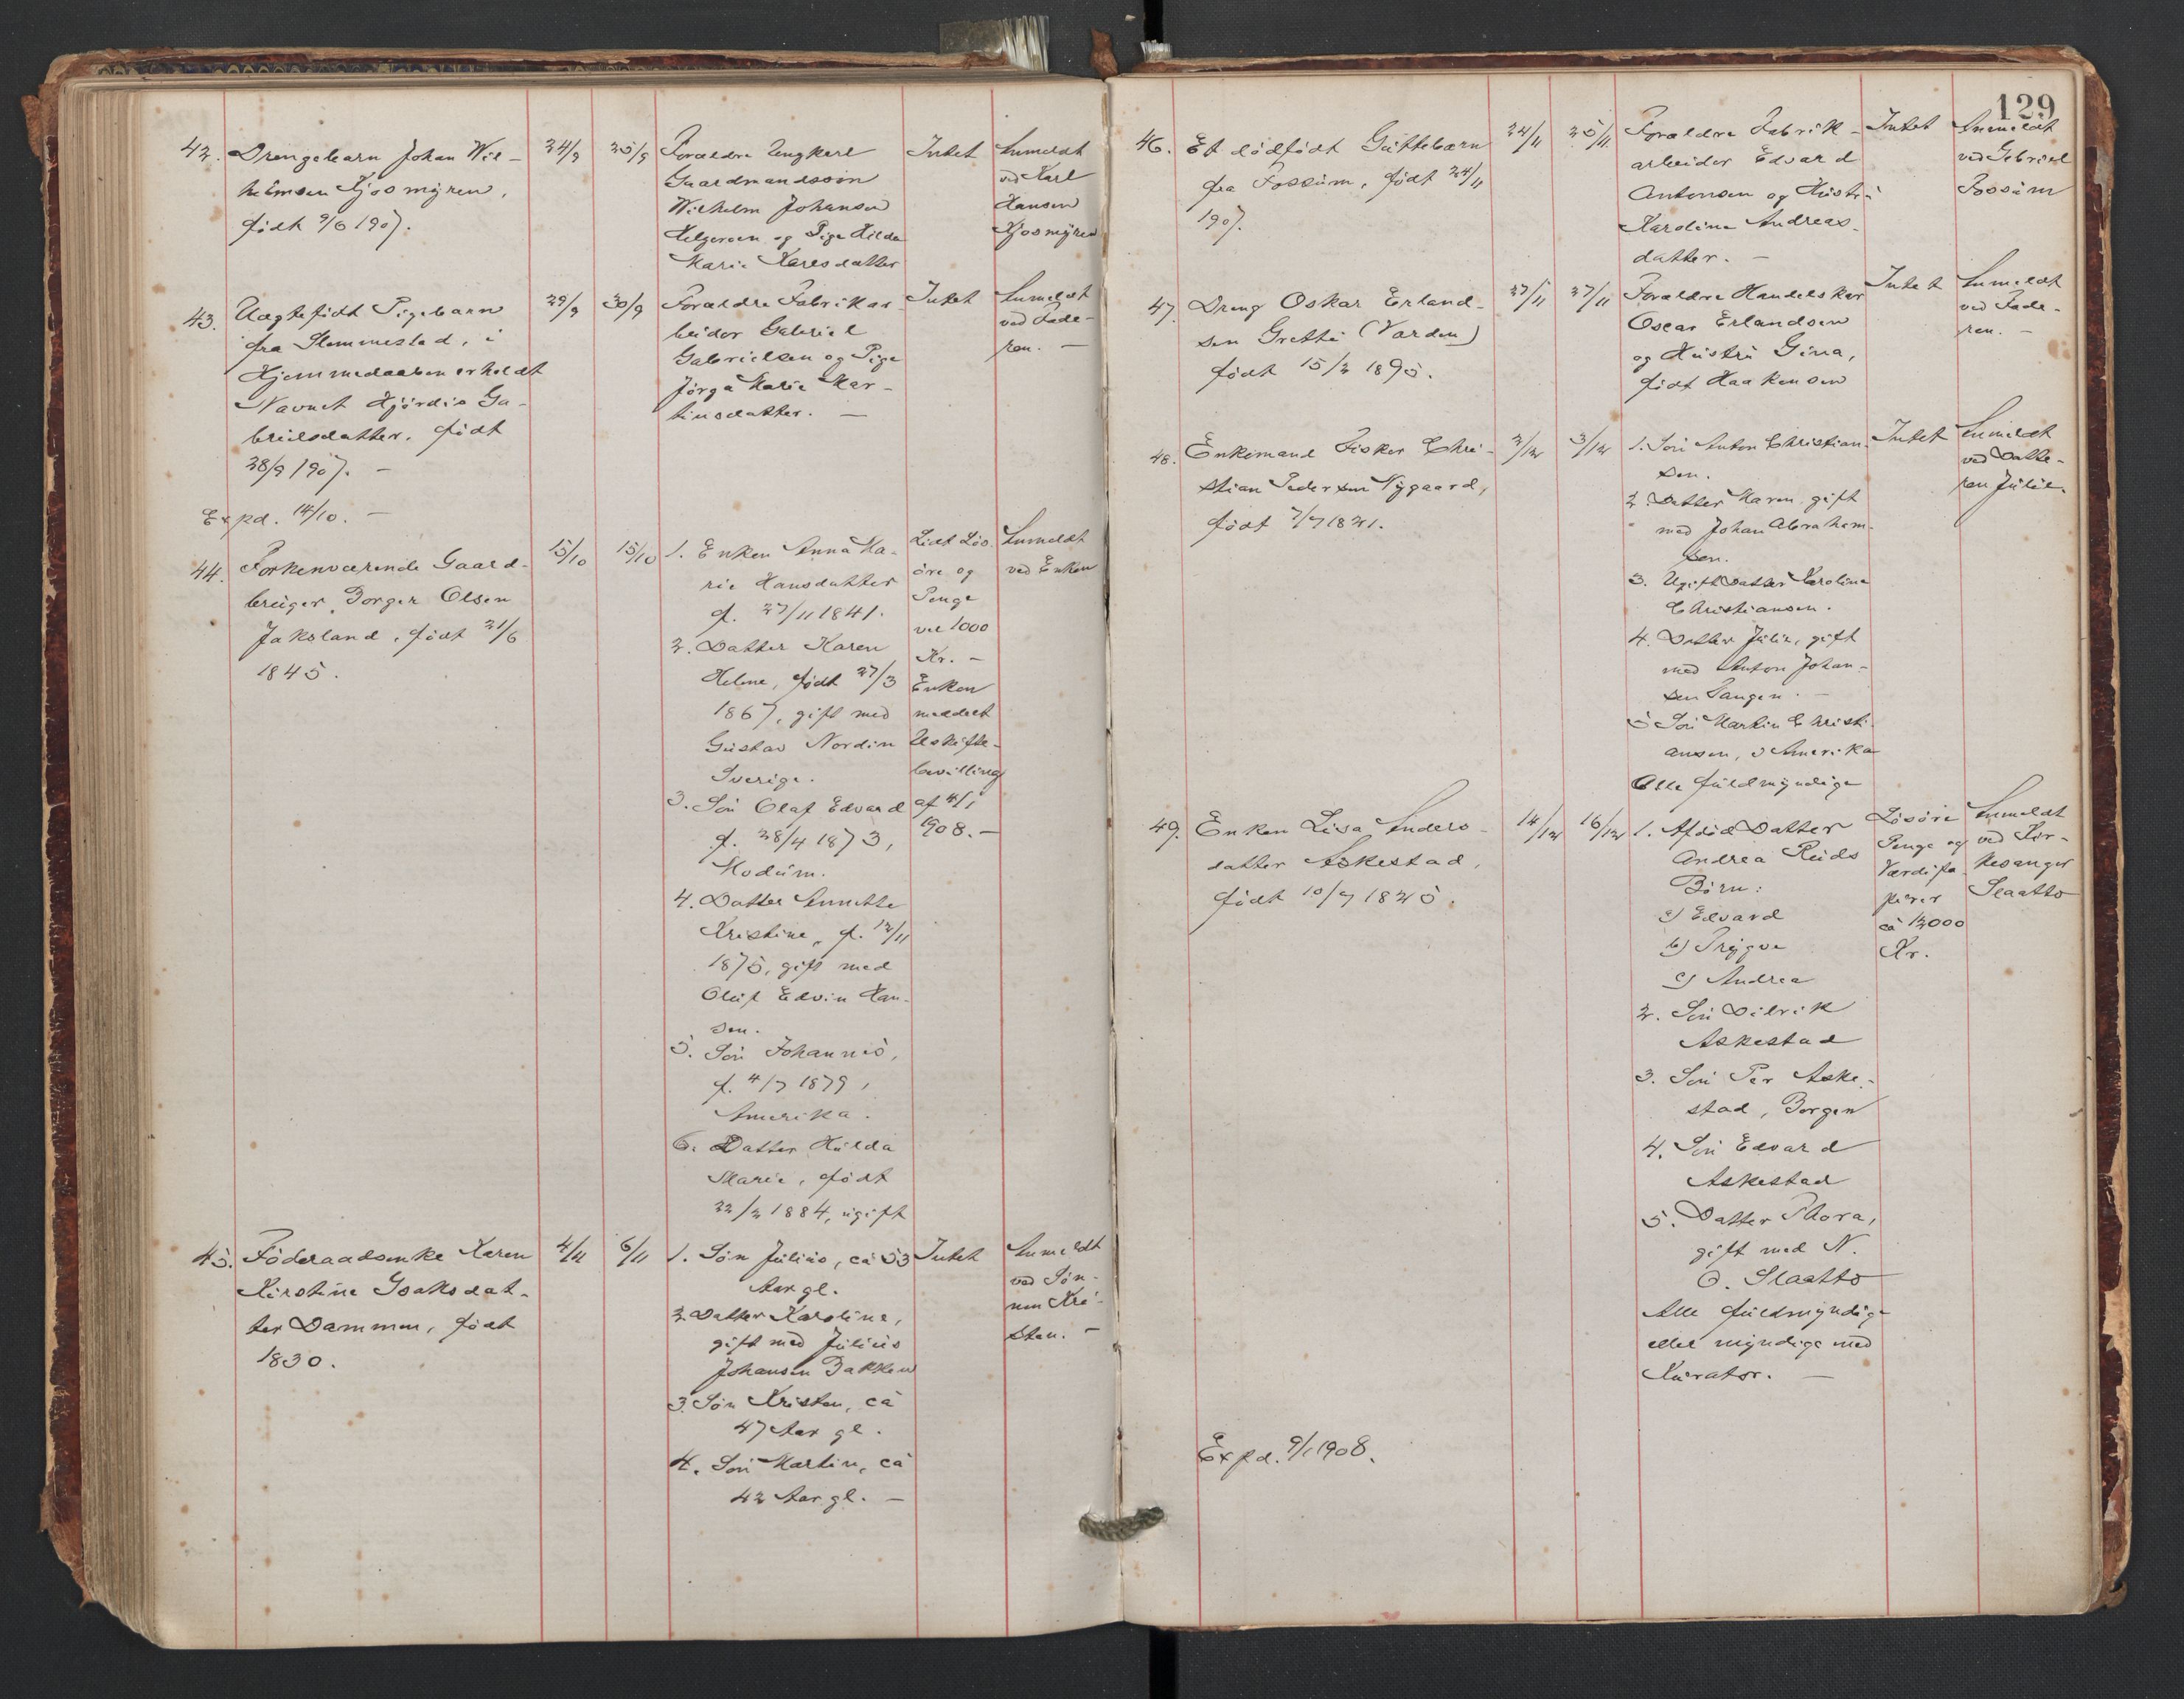 129
42. Drengebarn Johan Wil-
helmsen Kjosmyren,
født 9/6 1907.
24/9
25/9
Forældre Ungkarl
Gaardmandssøn
Wilhelm Johansen
Helgeroen og Pige Hilda
Marie Karlsdatter
Intet
Anmeldt
ved Karl
Hansen
Kjosmyren
43. Uægtefødt Pigebarn
fra Slemmestad, i
Hjemmedaaben erholdt
Navnet Hjørdis Ga-
brielsdatter, født
28/9 1907. -
Expd. 14/10. -
29/9
30/9
Forældre Fabrikar-
beider Gabriel
Gabrielsen og Pige
Jørga Marie Mar-
tinsdatter. -
Intet
Anmeldt
ved Fade-
ren. -
44. Forhenværende Gaard-
bruger Borger Olsen
Jaksland, født 21/6
1845.
15/10
15/10
1. Enken Anna Ma-
rie Hansdatter
f. 27/11 1841.
2. Datter Karen
Helene, født 27/3
1867, gift med
Gustav Nordin
Sverige.
3. Søn Olaf Edvard
f. 28/4 1873,
Modum.
4. Datter Annette
Kristine, f. 12/11
1875, gift med
Oluf Edvin Han-
sen.
5. Søn Johannes,
f. 4/7 1879,
Amerika.
6. Datter Hulda
Marie, født
22/2 1884, ugift
Lidt Løs-
øre og
Penge
vel 1000
Kr. -
Enken
meddelt
Uskifte-
bevilling
af 4/1
1908. -
Anmeldt
ved Enken
45. Føderaadsenke Karen
Kirstine Isaksdat-
ter Dammen, født
1830.
4/11
6/11
1. Søn Julius, ca 53
Aar gl.
2. Datter Karoline,
gift med Julius
Johansen Bakken
3. Søn Kristen, ca
47 Aar gl.
4. Søn Martin, ca
42 Aar gl. -
Intet
Anmeldt
ved Søn-
nen Kri-
sten. -
46. Et dødfødt Guttebarn
fra Fossum, født 24/11
1907.
24/11
25/11
Forældre Fabrik-
arbeider Edvard
Antonsen og Hustru
Karoline Andreas-
datter. -
Intet
Anmeldt
ved Gabriel
Fossum
47. Dreng Oskar Erland-
sen Grette (Varden)
født 15/2 1895.
27/11
27/11
Forældre Handelskar
Oscar Erlandsen
og Hustru Gina,
født Haakensen
Intet
Anmeldt
ved Fade-
ren. -
48. Enkemand Fisker Chri-
stian Pedersen Nygaard,
født 7/7 1821.
2/12
3/12
1. Søn Anton Christian-
sen.
2. Datter Maren gift
med Johan Abraham-
sen.
3. Ugift Datter Karoline
Christiansen.
4. Datter Julie, gift
med Anton Johan-
sen Tangen. -
5 Søn Martin Christi-
ansen, i Amerika
Alle fuldmyndige
Intet
Anmeldt
ved Datte-
ren Julie.
49. Enken Lisa Anders-
datter Askestad,
født 10/7 1825.
14/12
16/12
1. Afdød Datter
Andrea Ruds
Børn:
a) Edvard
b) Trygve
c) Andrea
2. Søn Didrik
Askestad
3. Søn Per Aske-
stad, Borgen
4. Søn Edvard
Askestad
5. Datter Thora,
gift med N.
O. Slaatto
Alle fuldmyndige
eller myndige med
Kurator. -
Løsøre
Penge og
Værdipa-
pirer
ca 12000
Kr.
Anmeldt
ved Kir-
kesanger
Slaatto
Expd. 9/1 1908.